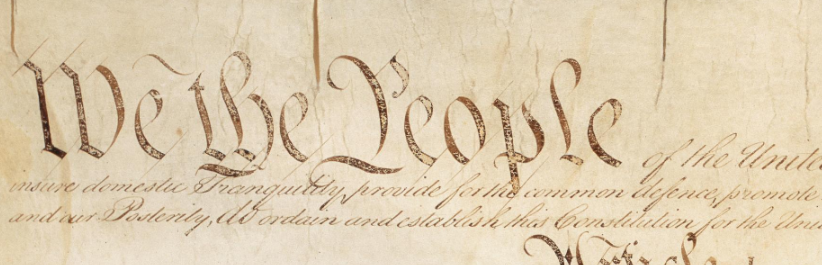 We the People of the Unite
insure domestic Tranquility, provide for the common defence, promote
and our Posterity, do ordain and establish this Constitution for the Unit